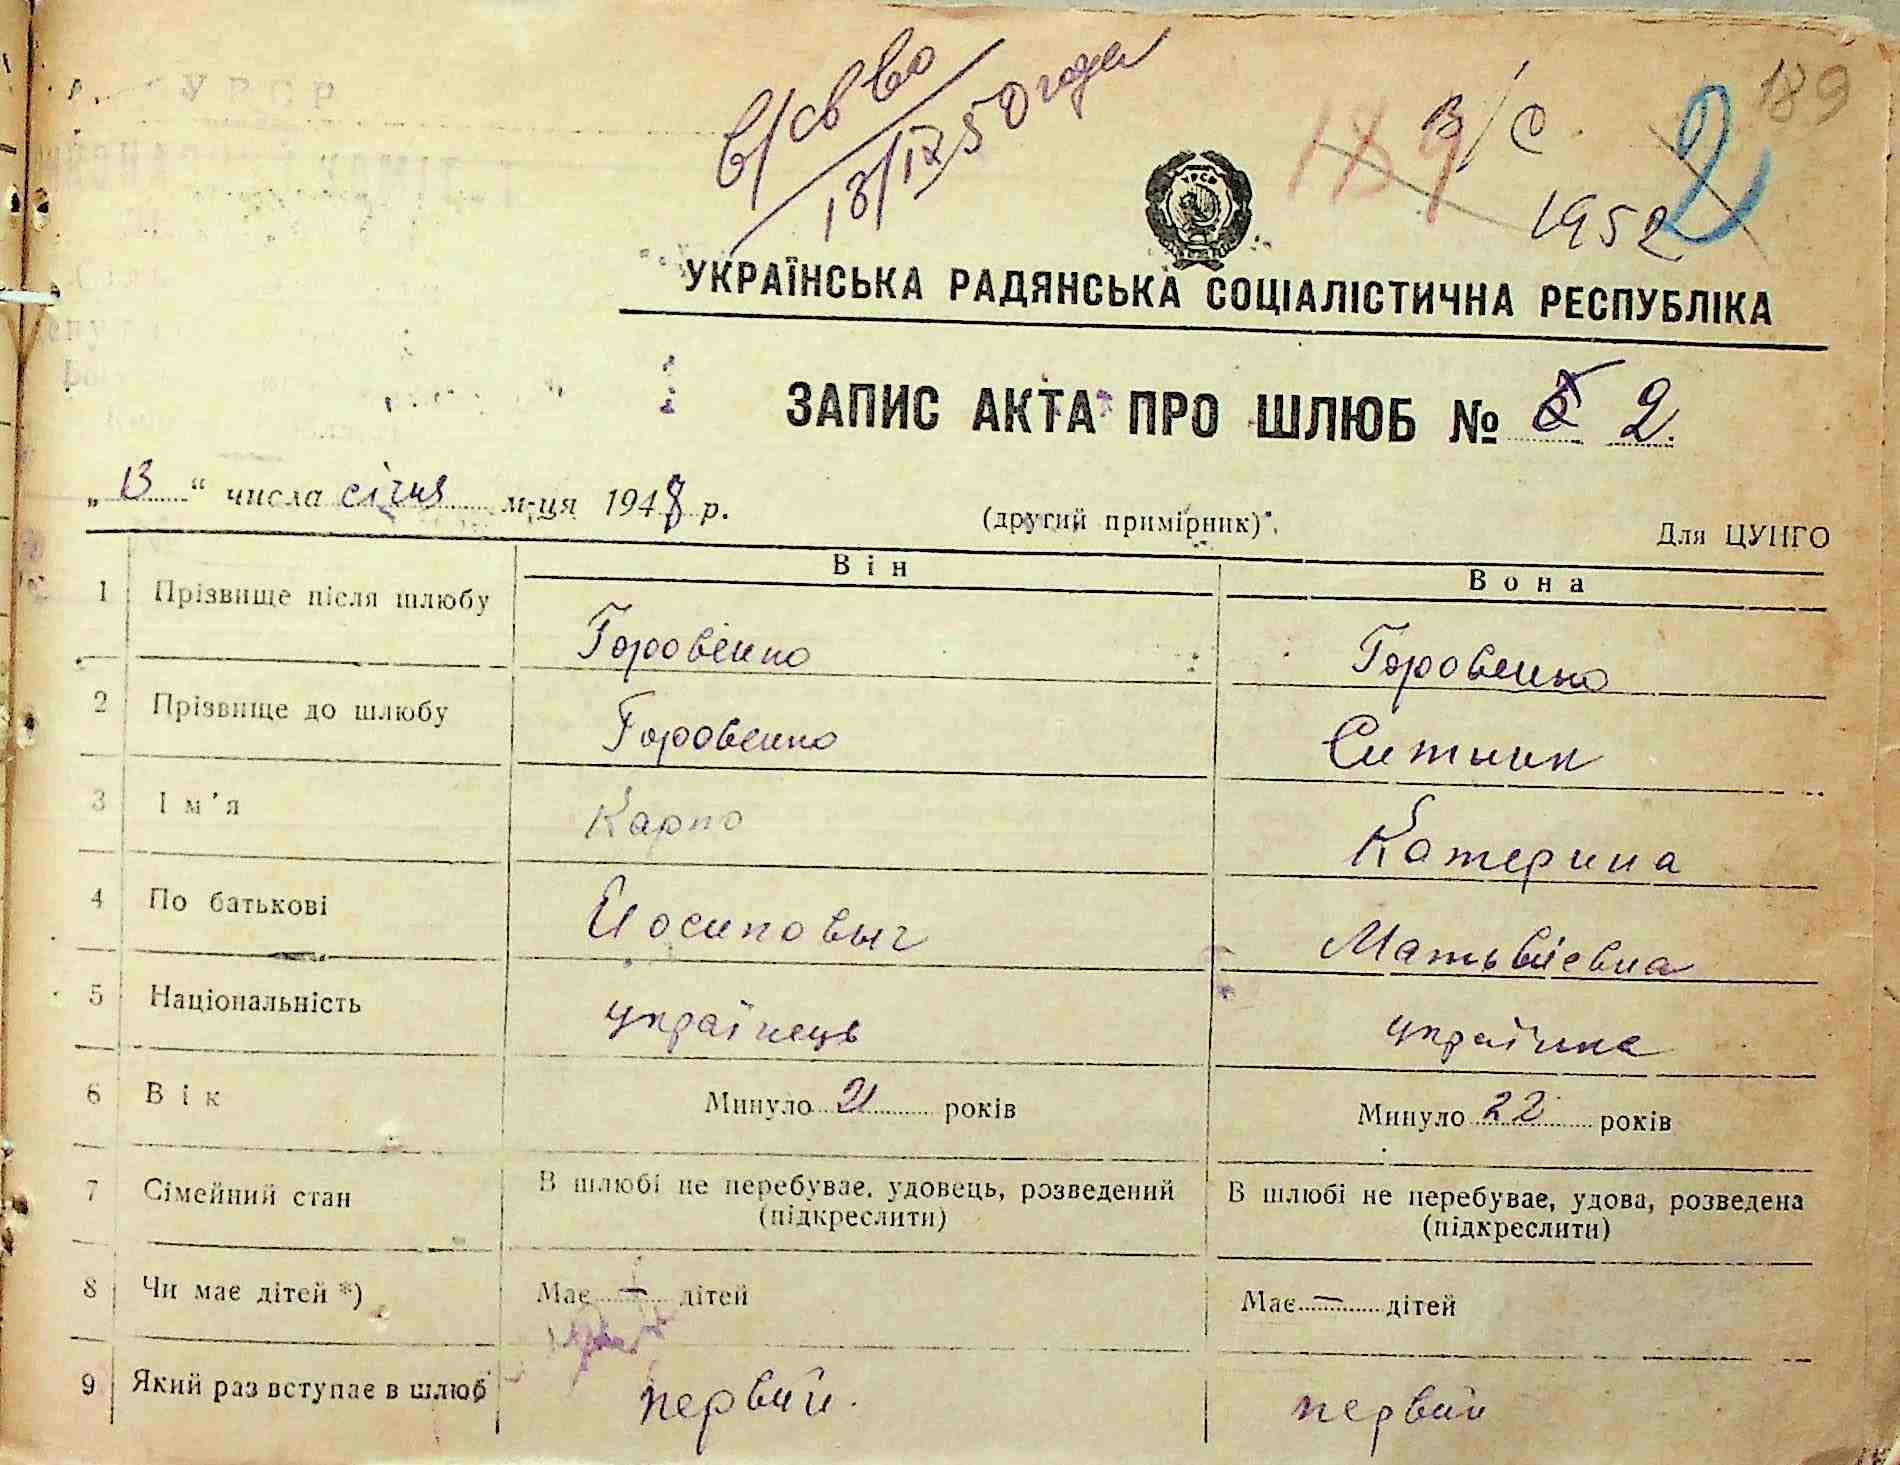 189
в/св во
18/IX 50 года
189
в/с.
1952
2
УРСР
УКРАЇНСЬКА РАДЯНСЬКА СОЦІАЛІСТИЧНА РЕСПУБЛІКА
ЗАПИС АКТА ПРО ШЛЮБ № 2.
„13“ числа січня м-ця 1948 р.
(другий примірник)
Для ЦУНГО
Він Вона
1 Прізвище після шлюбу Горовенко Горовенко
2 Прізвище до шлюбу Горовенко Ситник
3 Ім'я Карпо Катерина
4 По батькові Йосиповыч Матьвієвна
5 Національність українець українка
6 Вік Минуло 21 років Минуло 22 років
7 Сімейний стан В шлюбі не перебуває, удовець, розведений В шлюбі не перебуває, удова, розведена
(підкреслити) (підкреслити)
8 Чи має дітей *) Має — дітей Має — дітей
9 Який раз вступає в шлюб первий. первий